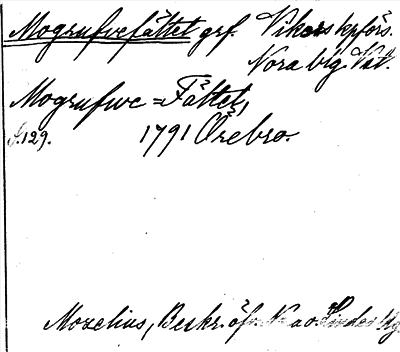 Mogrufvefältet grf. Vikers kpförs.
Nora blg Vstm.
Mogrufwe=Fältet,
S.129. 1791 Örebro.
Mozelius, Beskr. öfv. N ao Lindes blg